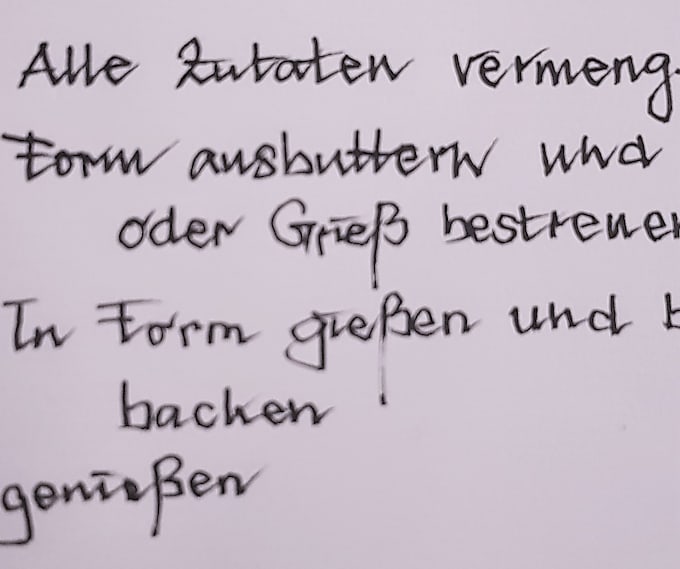 Alle Zutaten vermeng
Form ausbuttern und
oder Grieß bestreuen
In Form gießen und b
backen
genießen